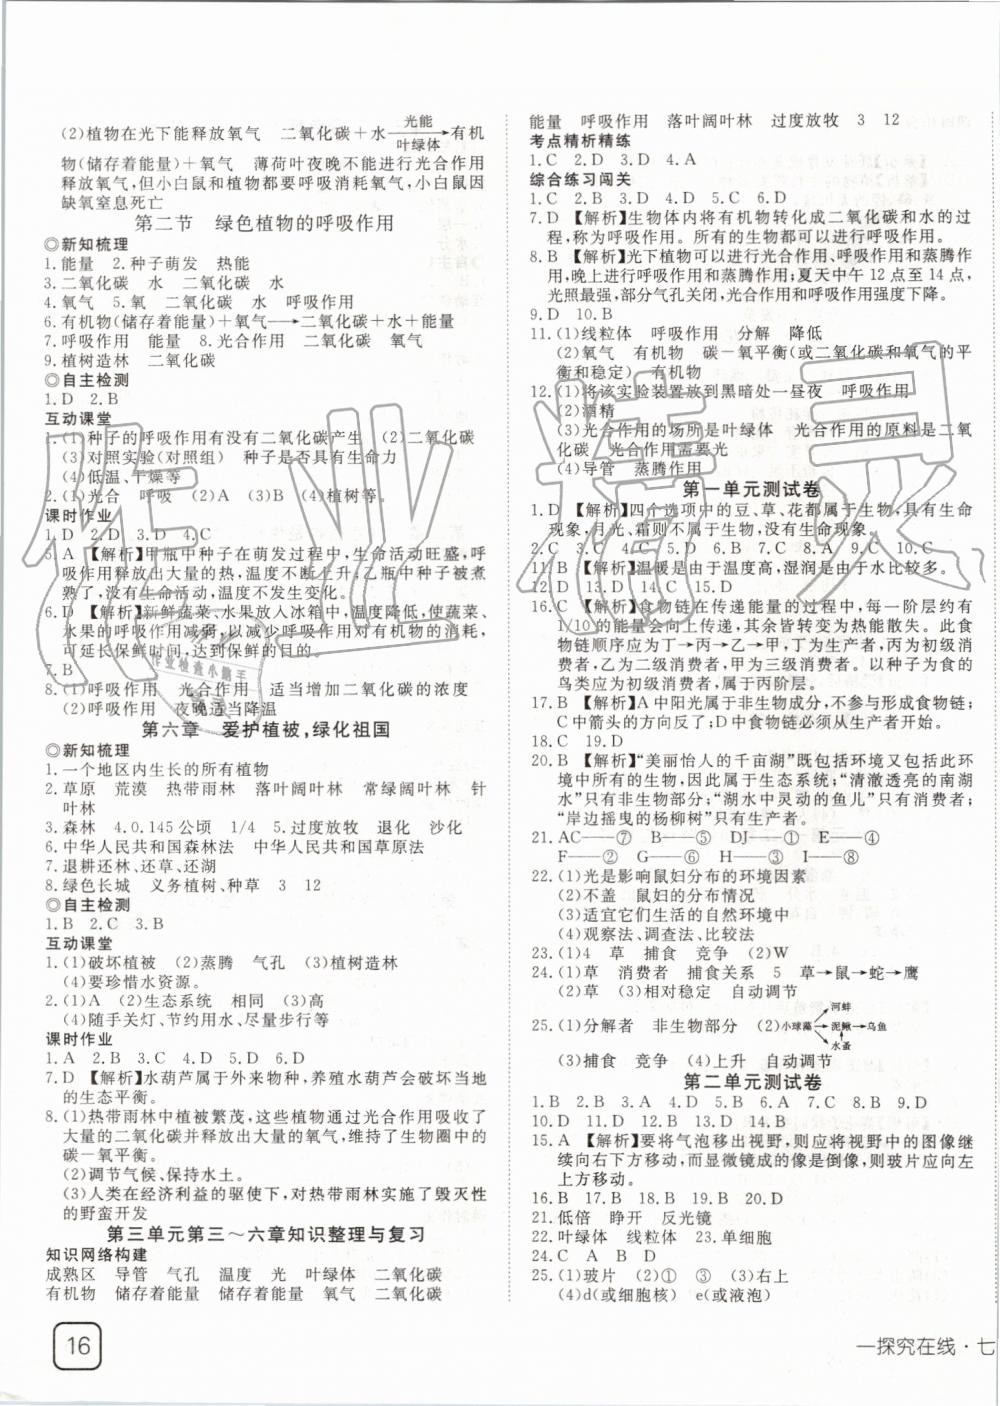 (2)植物在光下能释放氧气　二氧化碳＋水 光能/叶绿体→有机
物(储存着能量)＋氧气　薄荷叶夜晚不能进行光合作用
释放氧气,但小白鼠和植物都要呼吸消耗氧气,小白鼠因
缺氧窒息死亡
第二节　绿色植物的呼吸作用
◎新知梳理
1.能量　2.种子萌发　热能
3.二氧化碳　水　二氧化碳　水
4.氧气　5.氧　二氧化碳　水　呼吸作用
6.有机物(储存着能量)＋氧气→二氧化碳＋水＋能量
7.呼吸作用　能量　8.光合作用　二氧化碳　氧气
9.植树造林　二氧化碳
◎自主检测
1.D　2.B
互动课堂
1.(1)种子的呼吸作用有没有二氧化碳产生　(2)二氧化碳
(3)对照实验(对照组)　种子是否具有生命力
(4)低温、干燥等
2.(1)光合　呼吸　(2)A　(3)B　(4)植树等。
课时作业
1.D　2.D　3.D　4.C
5.A　【解析】甲瓶中种子在萌发过程中,生命活动旺盛,呼
吸作用释放出大量的热,温度不断上升;乙瓶中种子被煮
熟了,没有生命活动,温度不发生变化。
6.D　【解析】新鲜蔬菜、水果放入冰箱中,温度降低,使蔬菜、
水果的呼吸作用减弱,以减少呼吸作用对有机物的消耗,
可延长保鲜时间,达到保鲜的目的。
7.B
8.(1)呼吸作用　光合作用　适当增加二氧化碳的浓度
(2)呼吸作用　夜晚适当降温
第六章　爱护植被,绿化祖国
◎新知梳理
1.一个地区内生长的所有植物
2.草原　荒漠　热带雨林　落叶阔叶林　常绿阔叶林　针
叶林
3.森林　4.0.145公顷　1/4　5.过度放牧　退化　沙化
6.中华人民共和国森林法　中华人民共和国草原法
7.退耕还林,还草,还湖
8.绿色长城　义务植树、种草　3　12
◎自主检测
1.B　2.C　3.B
互动课堂
1.(1)破坏植被　(2)蒸腾　气孔　(3)植树造林
(4)要珍惜水资源。
2.(1)A　(2)生态系统　相同　(3)高
(4)随手关灯、节约用水、绿化等等
课时作业
1.A　2.B　3.C　4.D　5.C　6.D
7.D　【解析】水葫芦属于外来物种,养殖水葫芦会破坏当地
的生态平衡。
8.(1)热带雨林中植被繁茂,这些植物通过光合作用吸收了
大量的二氧化碳并释放出大量的氧气,维持了生物圈中的
碳－氧平衡。
(2)调节气候、保持水土。
(3)人类在经济利益的驱使下,对热带雨林实施了毁灭性
的野蛮开发
第三单元第三～六章知识整理与复习
知识网络构建
成熟区　导管　气孔　温度　光　叶绿体　二氧化碳
有机物　储存着能量　储存着能量　氧气　二氧化碳
16
能量　呼吸作用　落叶阔叶林　过度放牧　3　12
考点精析精练
1.C　2.D　3.D　4.A
综合练习闯关
1.C　2.B　3.D　4.D　5.C　6.D
7.D　【解析】生物体内将有机物转化成二氧化碳和水的过
程,称为呼吸作用。所有的生物都可以进行呼吸作用。
8.B　【解析】光下植物可以进行光合作用、呼吸作用和蒸腾作
用,晚上进行呼吸作用和蒸腾作用;夏天中午12点至14点,
光照最强,部分气孔关闭,光合作用和呼吸作用强度下降。
9.D　10.B
11.(1)线粒体　呼吸作用　分解　降低
(2)氧气　有机物　碳－氧平衡(或二氧化碳和氧气的平
衡和稳定)　有机物
12.(1)将该实验装置放到黑暗处一昼夜　呼吸作用
(2)酒精
(3)光合作用的场所是叶绿体　光合作用的原料是二氧
化碳　光合作用需要光
(4)导管　蒸腾作用
第一单元测试卷
1.D　【解析】四个选项中的豆、草、花都属于生物,具有生命
现象,月光、霜则不属于生物,没有生命现象。
2.C　3.C　4.D　5.D　6.B　7.C　8.A　9.C　10.C
11.B　【解析】温暖是由于温度高,湿润是由于水分比较多。
12.D　13.D　14.C　15.D
16.C　【解析】食物链在传递能量的过程中,每一阶层约有
1/10的能量会向上传递,其余皆转变为热能散失。此食
物链顺序应为丁→丙→乙→甲,丁为生产者,丙为初级消
费者,乙为二级消费者,甲为三级消费者。以种子为食的
鸟类应为初级消费者,属于丙阶层。
17.B　【解析】A中阳光属于非生物成分,不参与形成食物链;
C中箭头的方向反了;D中食物链必须从生产者开始。
18.C　19.D
20.B　【解析】“美丽怡人的千亩湖”既包括环境又包括此环
境中所有的生物,因此属于生态系统;“清澈透亮的南湖
水”只有非生物部分;“湖水中灵动的鱼儿”只有消费者;
“岸边摇曳的杨柳树”只有生产者。
21.AC——⑦　B——⑤　DJ——①　E——④
F——②　G——⑥　H——③　I——⑧
22.(1)光是影响鼠妇分布的环境因素
(2)不盖　鼠妇的分布情况
(3)适宜它们生活的自然环境中
(4)观察法、调查法、比较法
23.(1)4　草　捕食　竞争　(2)W
24.(1)草　消费者　捕食关系　5　草→鼠→蛇→鹰
(2)草　(3)相对稳定　自动调节
25.(1)分解者　非生物部分　(2)小球藻→河蚌 →泥鳅→乌鱼 →水蚤
(3)捕食　竞争　(4)上升　自动调节
第二单元测试卷
1.B　2.B　3.A　4.D　5.B　6.A　7.C　8.B　9.D
10.D　11.D　12.B　13.D　14.B
15.A　【解析】要将气泡移出视野,则应将视野中的图像继
续向右下方移动,而显微镜成的像是倒像,则玻片应向左
上方移动。
16.B　17.B　18.B　19.B　20.D
21.低倍　睁开　反光镜
22.叶绿体　线粒体　23.单细胞
24.C　A　B　D
25.(1)玻片　(2)①　③　(3)右上
(4)d(或细胞核)　e(或液泡)
一探究在线·七
作业精灵
作业检查小霸王